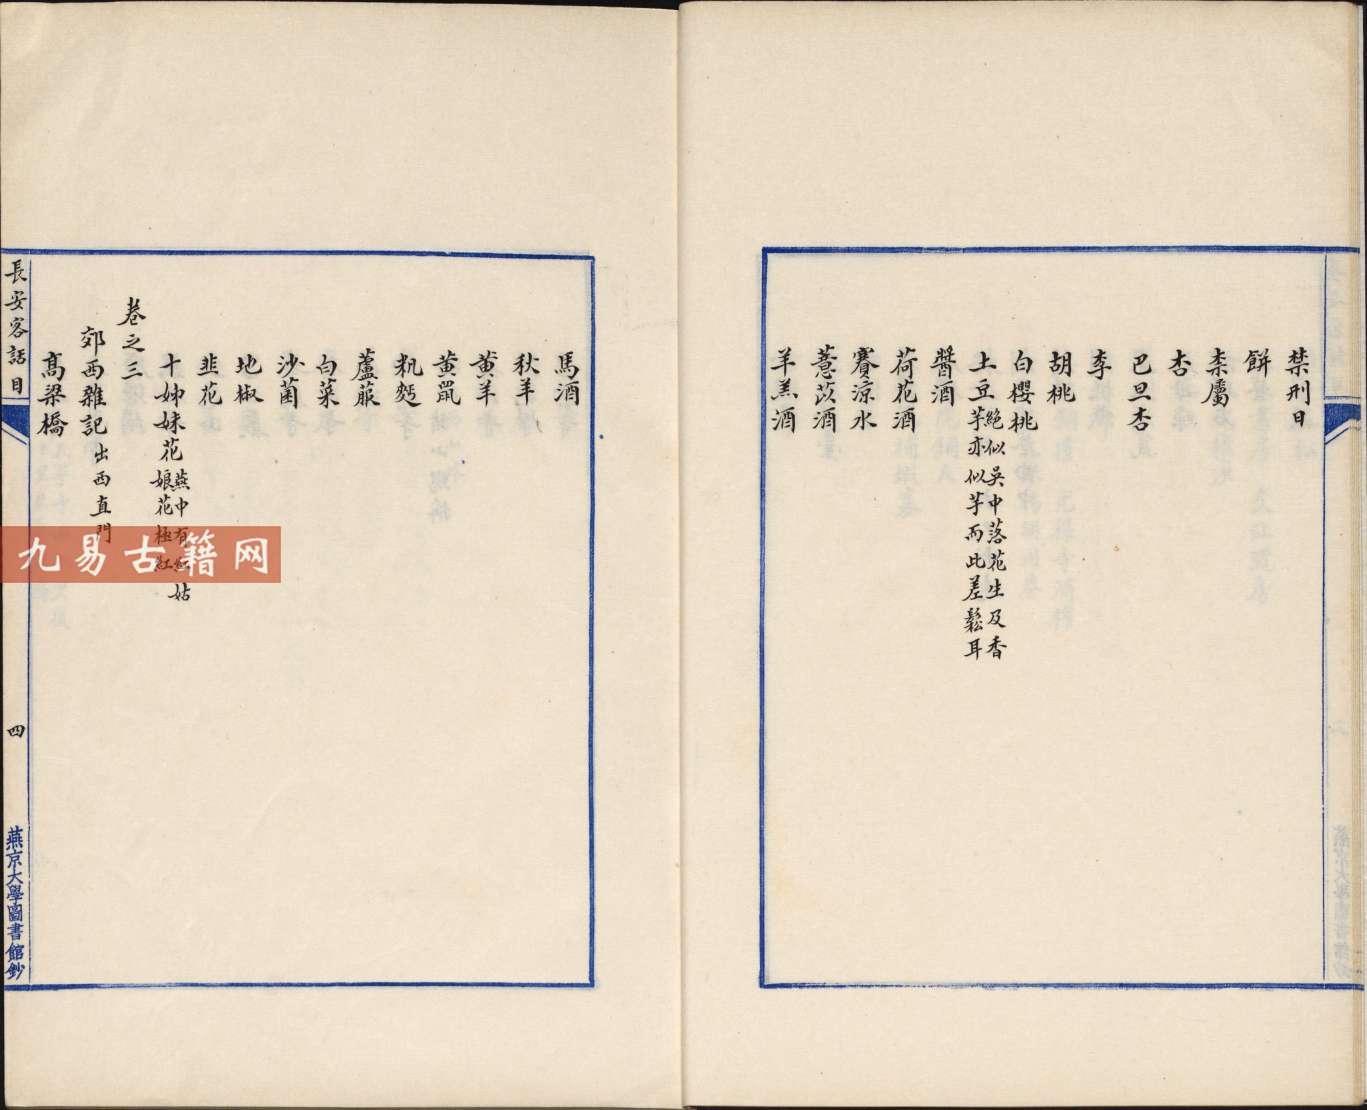 禁刑日
餅
柰屬
杏
巴旦杏
李
胡桃
白櫻桃
土豆
絶似吳中落花生及香
芋亦似芋而此差鬆耳
醬酒
荷花酒
賽涼水
薏苡酒
羊羔酒
馬酒
秋羊
黄羊
黄鼠
蘆菔
白菜
沙菌
地椒
韭花
十姊妹花
燕中有紅姑
娘花極紅
卷之三
郊西雜記
出西直門
髙梁橋
長安客話 目
四
燕京大學圖書館鈔
九易古籍网